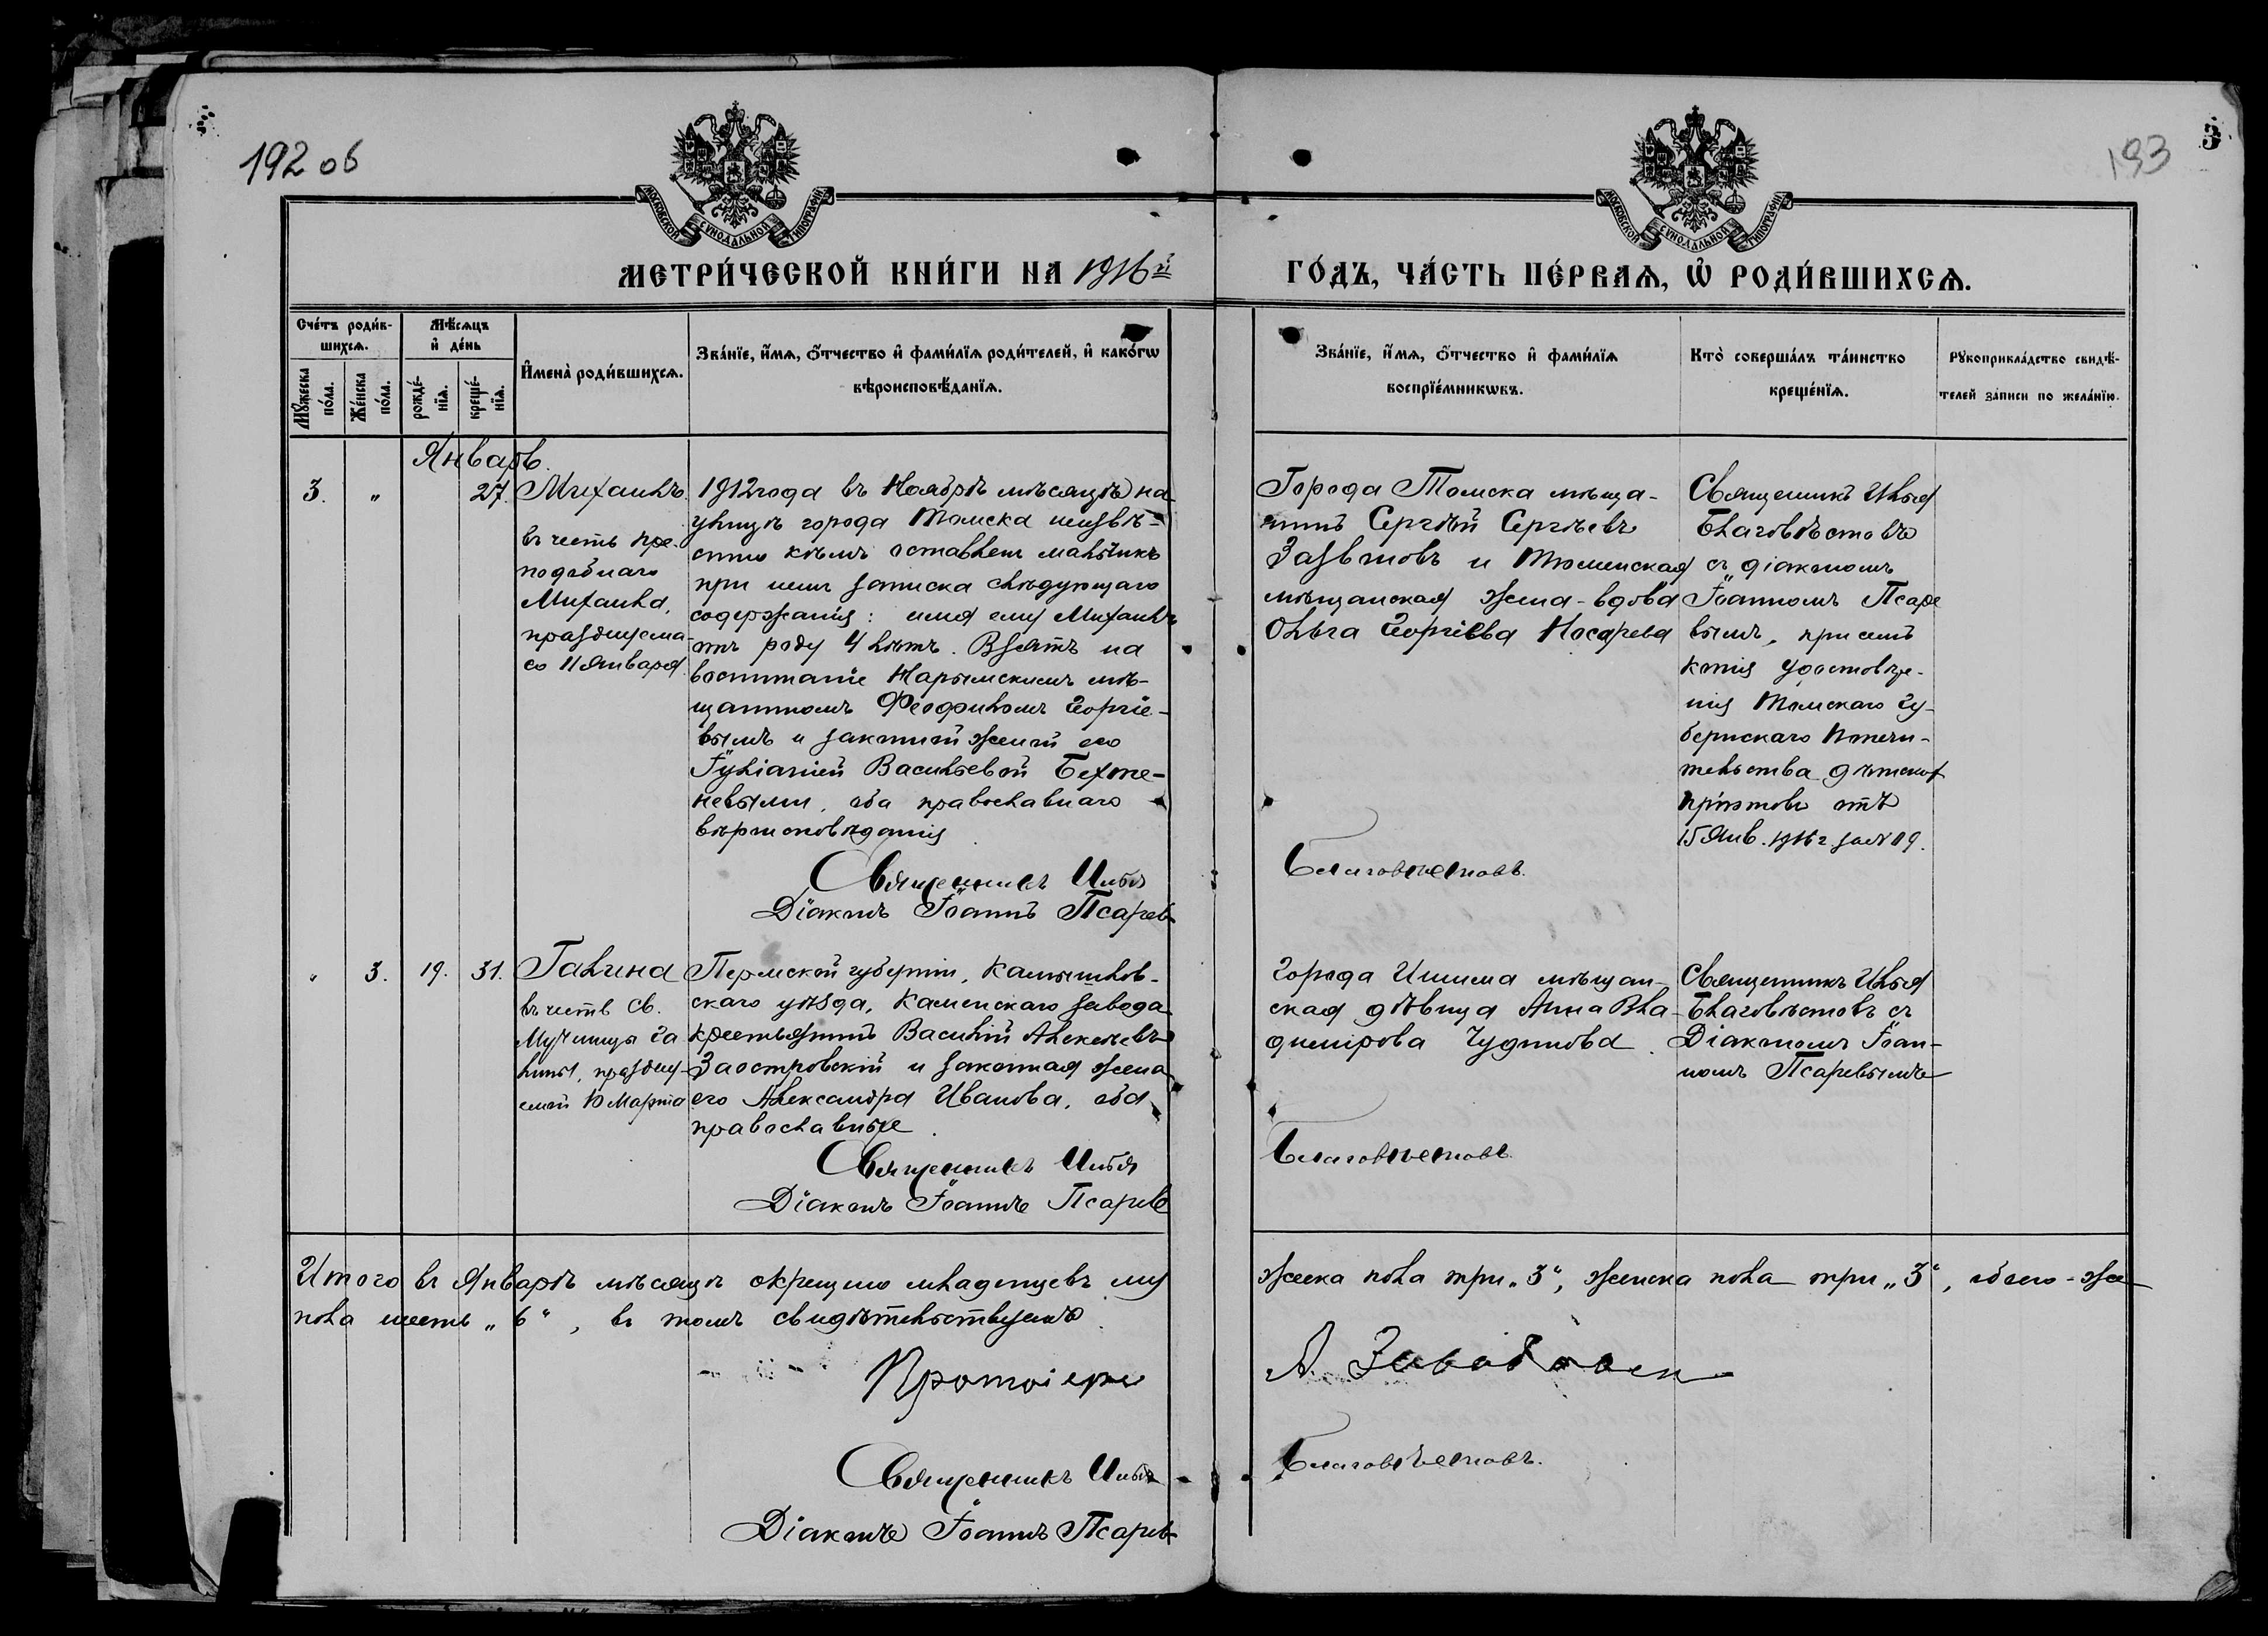 192 об
193
3
МОСКОВСКОЙ СѴНОДАЛЬНОЙ ТИПОГРАФІИ
МОСКОВСКОЙ СѴНОДАЛЬНОЙ ТИПОГРАФІИ
МЕТРИ́ЧЕСКОЙ КНИ́ГИ НА 1916й
ГО́ДЪ, ЧА́СТЬ ПЕ́РВАѦ, Ѡ҆ РОДИ́ВШИХСѦ.
Сче́тъ роди́в-
шихсѧ.
Мꙋ́жеска по́ла.
Же́нска по́ла.
Мѣ́сѧцъ
и҆ де́нь
рожде́-
нїѧ.
креще́-
нїѧ.
И҆мена̀ роди́вшихсѧ.
Зва́нїе, и҆́мѧ, ѻ҆́тчество и҆ фами́лїѧ роди́телей, и҆ како́гѡ
вѣроисповѣ́данїѧ.
Зва́нїе, и҆́мѧ, ѻ҆́тчество и҆ фами́лїѧ
воспрїе́мникѡвъ.
Кто̀ соверша́лъ та́инство
креще́нїѧ.
Рꙋкоприкла́дство свидѣ́-
телей за́писи по жела́нїю.
Январь.
3. " 27.
Михаилъ
въ честь пре-
подобнаго
Михаила,
празднуема-
го 11 Января
1912 года въ Ноябрѣ мѣсяцѣ на
улицѣ города Томска неизвѣ-
стно кѣмъ оставлен мальчикъ
при нем записка слѣдующаго
содержанія: имя ему Михаилъ
отъ роду 4 лѣтъ. Взятъ на
воспитаніе Нарымскимъ мѣ-
щаниномъ Феофиломъ Георгіе-
вымъ и законной женой его
Іуліаніей Васильевой Бехте-
невыми, оба православнаго
вѣроисповѣданія
Священникъ Илья
Діаконъ Іоаннъ Псарев
Города Томска мѣща-
нинъ Сергѣй Сергѣевъ
и Тюменская
мѣщанская жена-вдова
Ольга Георгіева Носарева
Благовѣстовъ.
Священникъ Илья
Благовѣстовъ
съ діакономъ
Іоанномъ Псаре
вымъ, при семъ
копія удостовѣре-
нія Томскаго Гу-
бернскаго Попечи-
тельства дѣтских
пріютовъ отъ
15 Янв. 1916 г. за № 19.
" 3. 19. 31.
Галина
въ честь св.
Мученицы Га
лины, праздну-
емой 10 Марта
Пермской губерніи, Камышлов-
скаго уѣзда, Каменскаго завода
крестьянинъ Василій Алексѣевъ
Заостровскій и законная жена
его Александра Иванова, оба
православные
Священникъ Илья
Діаконъ Іоаннъ Псарев
Города Ишима мѣщан-
ская дѣвица Анна Вла-
димірова Чудинова.
Благовѣстовъ
Священникъ Илья
Благовѣстовъ съ
Діакономъ Іоан-
номъ Псаревымъ
Итого въ Январѣ мѣсяцѣ окрещено младенцевъ му
жеска пола три „3“, женска пола три „3“, обоего-же
пола шесть „6“, въ томъ свидѣтельствуемъ
Протоіерей
А. Заводовск
Священникъ Илья
Благовѣстовъ.
Діаконъ Іоаннъ Псарев